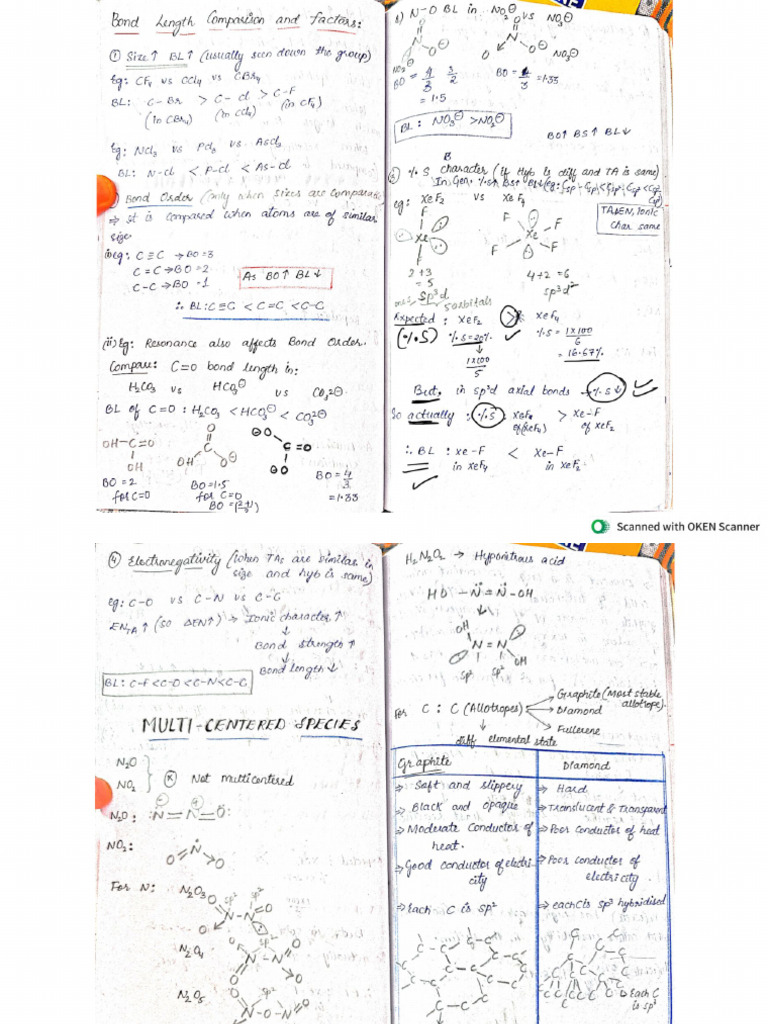 Bond Length Comparison and factors:
① Size↑ BL↑ (usually seen down the group)
Eg: CF₄ vs CCl₄ vs CBr₄
BL: C-Br > C-Cl > C-F
(in CBr₄) (in CCl₄) (in CF₄)
Eg: NCl₃ vs PCl₃ vs AsCl₃
BL: N-Cl < P-Cl < As-Cl
Bond Order (only when sizes are comparable)
⇒ It is compared when atoms are of similar
size.
(i) eg: C≡C → BO=3
C=C → BO=2
C-C → BO=1
As BO↑ BL↓
∴ BL: C≡C < C=C < C-C
(ii) Eg: Resonance also affects Bond Order.
Compare: C=O bond length in:
H₂CO₃ vs HCO₃⊖ vs CO₃²⊖
BL of C=O : H₂CO₃ < HCO₃⊖ < CO₃²⊖
OH-C=O
OH
O
C
OH O⊖
⊖O
C=O
⊖O
BO=2
for C=O
BO=1.5
for C=O
BO=4/3
=1.33
N-O BL in NO₂⊖ vs NO₃⊖
O N O⊖
O
O N O⊖
NO₂⊖
NO₃⊖
BO = 4/3 3/2
= 1.5
BO = 4/3 = 1.33
BL: NO₃⊖ > NO₂⊖
BO↑ BS↑ BL↓
③ %S character (if Hyb is diff and TA is same)
In Gen. %S↑ BS↑ BL↓
eg: XeF₂ vs XeF₄
TA&EN, Ionic
char same
F
Xe
F
F F
Xe
F F
2+3
=5
sp³d
5 orbitals
4+2=6
sp³d²
Expected : XeF₂ > XeF₄
(%S) %S=20% ✓ %S = 1×100/6
1×100/5
= 16.67%
But, in sp³d axial bonds → %S↓ ✓✓
So actually : %S : Xe-F > Xe-F
of (XeF₄) of XeF₂
∴ BL : Xe-F < Xe-F
in XeF₄ in XeF₂
✓
Scanned with OKEN Scanner
④ Electronegativity (when TAs are similar in
size and hyb is same)
eg: C-O vs C-N vs C-C
EN_TA↑ (SO ΔEN↑) → Ionic character↑
↓
Bond strength↑
↓
Bond length↓
BL: C-F<C-O<C-N<C-C
MULTI-CENTERED SPECIES
N₂O
NO₂
Not multicentered
N₂O: N=N=O
NO₂:
O N O
For N: N₂O₃
sp² sp²
N₂O₄
N₂O₅
H₂N₂O₂ → Hyponitrous acid
HO-N=N-OH
↓
OH
N=N
OH
sp² sp²
For C : C (Allotropes)
Graphite (Most stable
allotrope)
Diamond
Fullerene
↓
diff elemental state
Graphite Diamond
⇒ Soft and slippery ⇒ Hard
⇒ Black and opaque ⇒ Translucent & Transparent
⇒ Moderate Conductor of
heat.
⇒ Poor conductor of heat
⇒ Good conductor of electri-
city
⇒ Poor conductor of
electricity.
⇒ Each C is sp² ⇒ each C is sp³ hybridised
Each C
is sp³